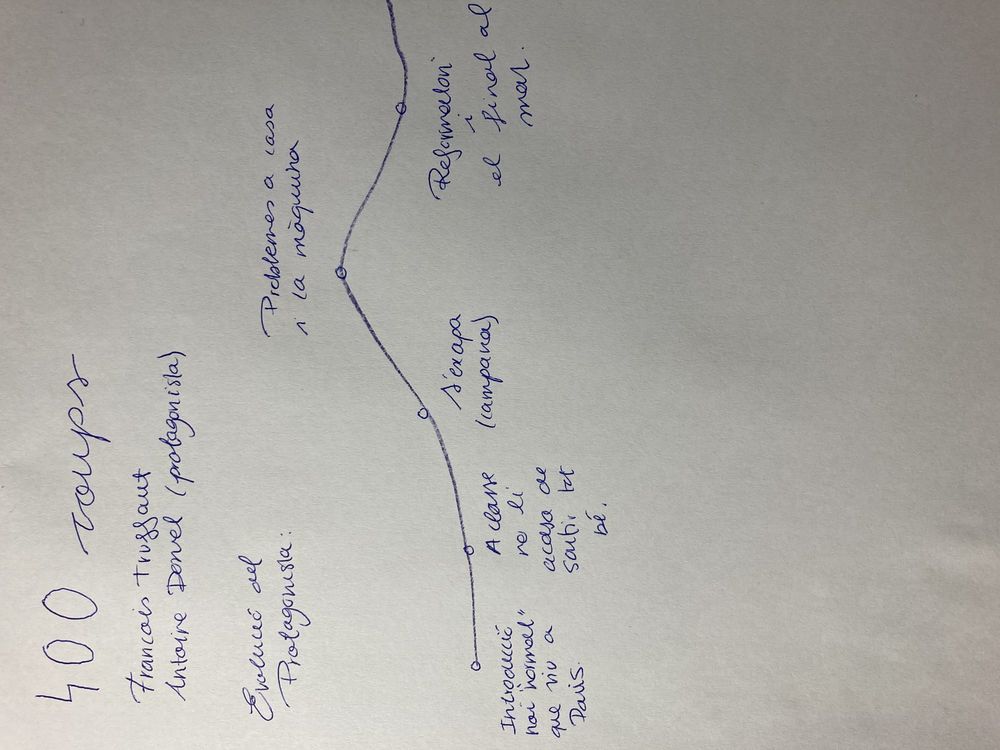 400 coups
Francois truffaut
Antoine Donel (protagonista)
Evolució del
Protagonista:
Introducció
noi "normal"
que viu a
París.
A classe
no li
acaba de
sortir tot
bé.
s'escapa
(campana)
Problemes a casa
i la màquina
Reformatori
i
el final al
mar.